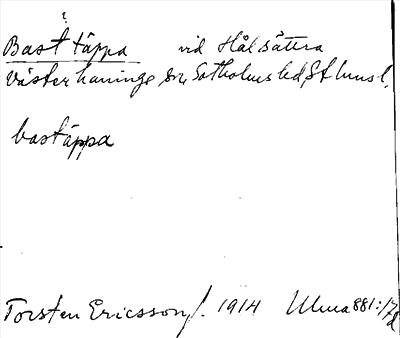 ?
Bast täppa vid Hålsättra
Västerhaninge sn, Sotholms hd, Sthms l.
bastäppa
Torsten Ericsson f. 1914 Ulma 881:17d